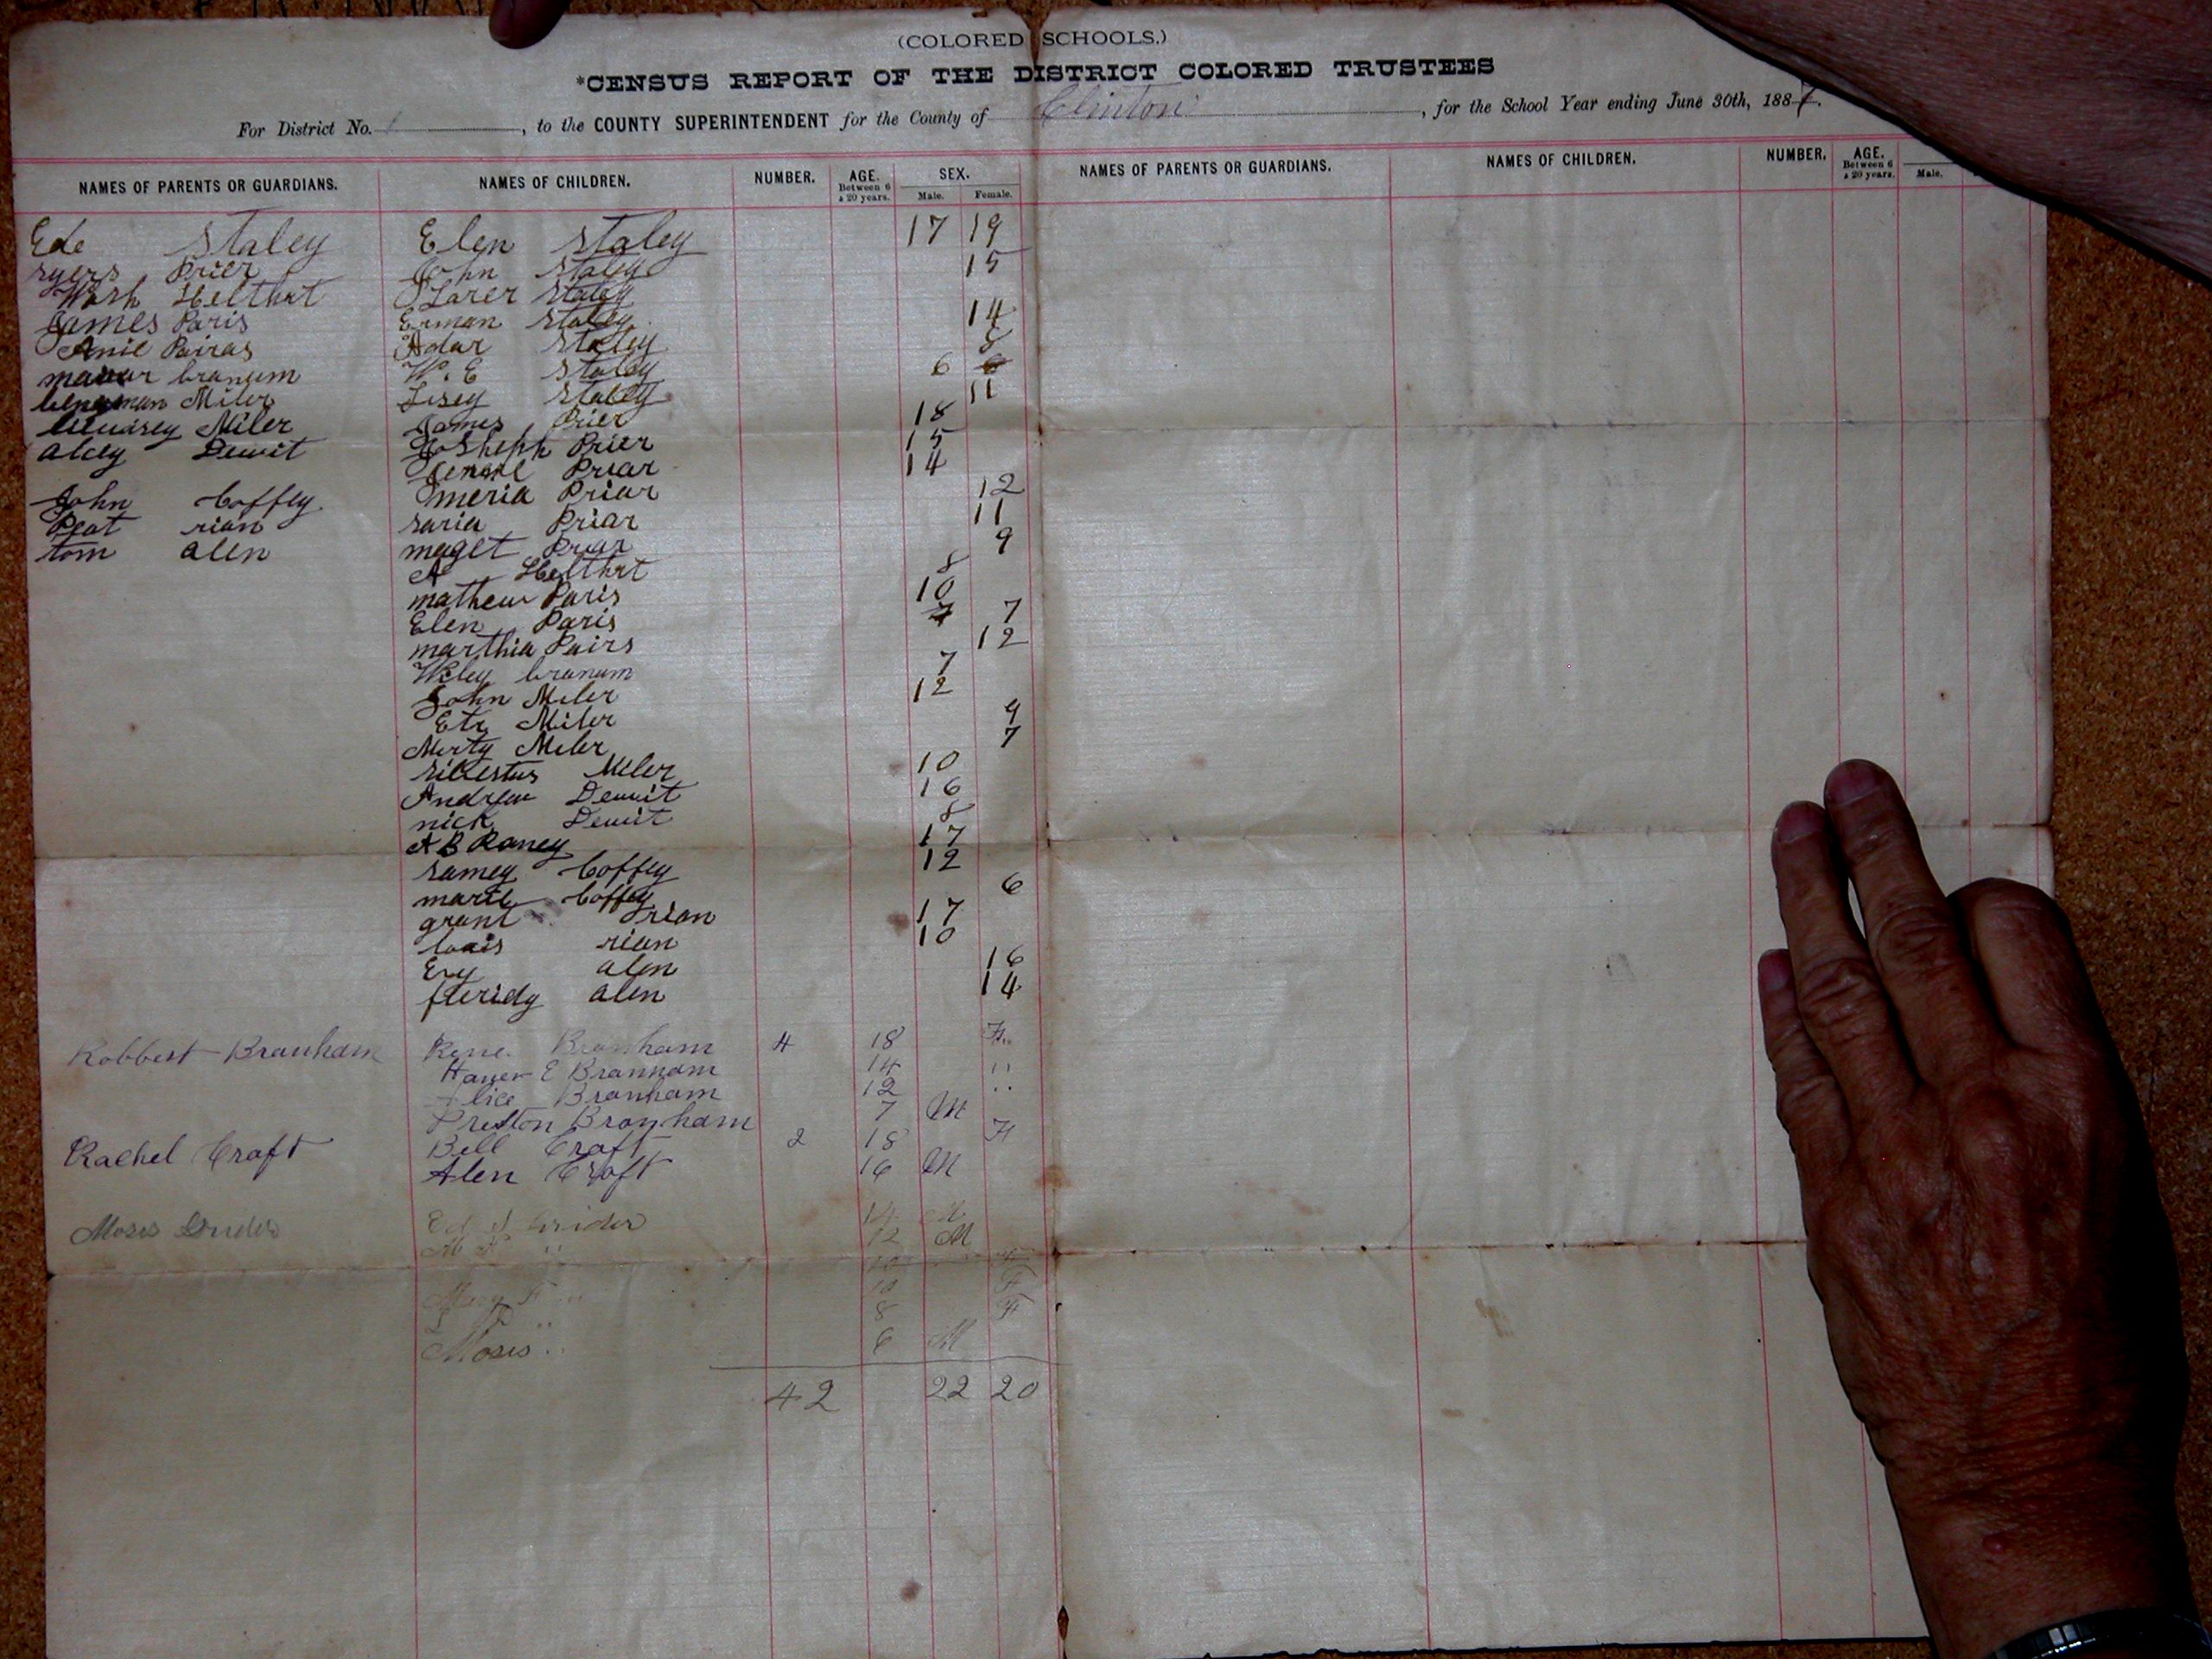 (COLORED SCHOOLS.)
*CENSUS REPORT OF THE DISTRICT COLORED TRUSTEES
For District No. 1, to the COUNTY SUPERINTENDENT for the County of Clinton, for the School Year ending June 30th, 1887.
NAMES OF PARENTS OR GUARDIANS. NAMES OF CHILDREN. NUMBER. AGE. Between 6 & 20 years. SEX. Male. Female. NAMES OF PARENTS OR GUARDIANS. NAMES OF CHILDREN. NUMBER. AGE. Between 6 & 20 years. Male.
Ede Staley Elen Staley 17 19
Prier John Staley 15
Wash Helthrt Staley
James Paris Erman Staley 14
Anie Pairas Adar Staley 8
branum W. E Staley 6
Miler Lisey Staley 11
Miler James Prier 18
alcy Dewit Josheph Prier 15
Priar 14
John Coffey meria Priar 12
Peat rian saria Priar 11
tom alen maget Priar 9
A Helthrt 8
mathew Paris 10
Elen Paris 7 7
marthia Pairs 12
Wiley branum 7
John Miler 12
Etr Miler 9
Mirty Miler 7
silvestus Miler 10
Andrew Dewit 16
nick Dewit 8
A B Raney 17
samey Coffey 12
Coffey 6
grant rian 17
louis rian 10
Ery alen 16
fleridy alen 14
Robbert Branham Rene. Branham 4 18 F.
E Branham 14 "
Alice Branham 12 "
Preston Branham 7 M
Rachel Craft Bell Craft 2 18 F
Alen Craft 16 M
Moses Grider Ed S Grider 14 M
M F " 12 M
10 F
Mary F " 10 F
" 8 F
Moses " 6 M
42 22 20